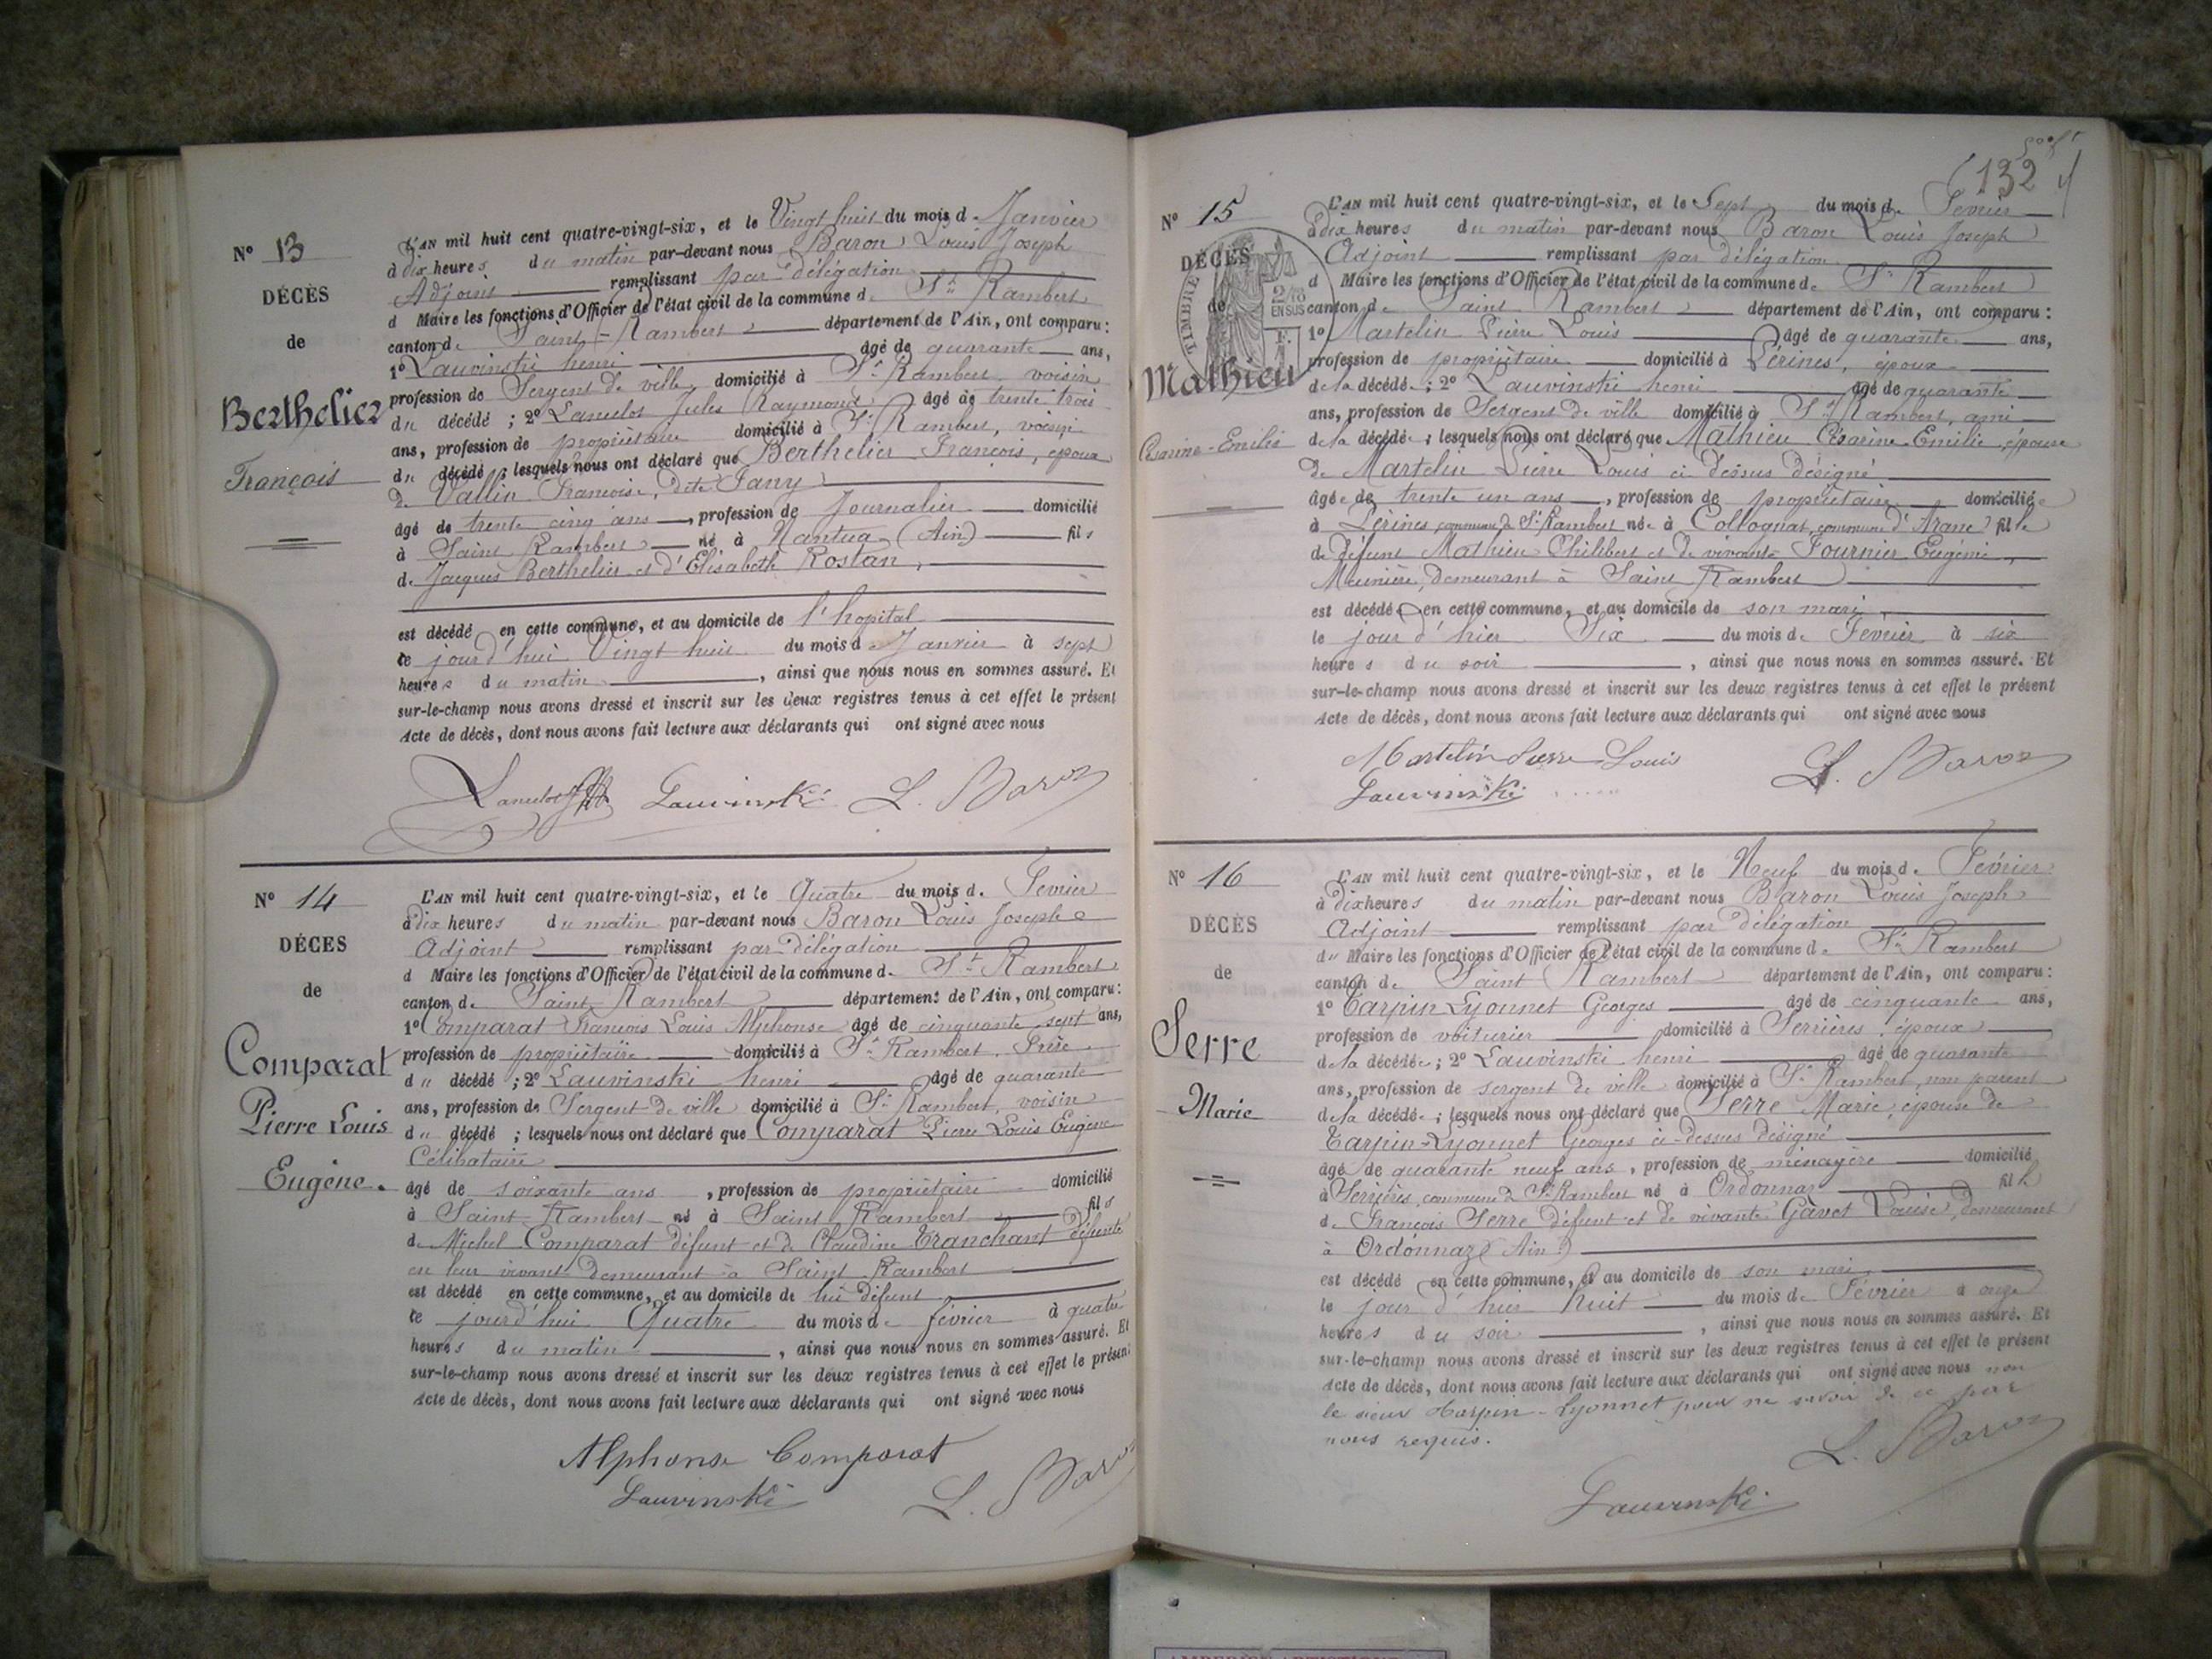 N° 13
DÉCÈS
de
Berthelier
François
L'AN mil huit cent quatre-vingt-six, et le Vingt huit du mois d. Janvier
à dix heures du matin par-devant nous Baron Louis Joseph
Adjoint remplissant par délégation
d Maire les fonctions d'Officier de l'état civil de la commune d. St Rambert
canton de Saint-Rambert département de l'Ain, ont comparu:
1° Lauvinski henri âgé de quarante ans,
profession de Sergent de ville domicilié à St Rambert voisin
du décédé ; 2° Lanulos Jules Raymond âgé de trente trois
ans, profession de propriétaire domicilié à St Rambert, voisin
du décédé ; lesquels nous ont déclaré que Berthelier François, époux
de Vallin Françoise, dite Fany
âgé de trente cinq ans, profession de Journalier domicilié
à Saint Rambert né à Nantua (Ain) fils
de Jacques Berthelier et d'Elisabeth Rostan,
est décédé en cette commune, et au domicile de l'hopital
ce jourd'hui Vingt huit du mois d Janvier à sept
heures du matin, ainsi que nous nous en sommes assuré. Et
sur-le-champ nous avons dressé et inscrit sur les deux registres tenus à cet effet le présent
Acte de décès, dont nous avons fait lecture aux déclarants qui ont signé avec nous
Lauvinski L. Baron
N° 14
DÉCES
de
Comparat
Pierre Louis
Eugène.
L'AN mil huit cent quatre-vingt-six, et le Quatre du mois d. Fevrier
à dix heures du matin par-devant nous Baron Louis Joseph
Adjoint remplissant par délégation
d Maire les fonctions d'Officier de l'état civil de la commune d. St Rambert
canton de Saint-Rambert département de l'Ain, ont comparu:
1° Comparat François Louis Alphonse âgé de cinquante sept ans,
profession de propriétaire domicilié à St Rambert, Frère
du décédé ; 2° Lauvinski henri âgé de quarante
ans, profession de Sergent de ville domicilié à St Rambert, voisin
du décédé ; lesquels nous ont déclaré que Comparat Pierre Louis Eugène
Célibataire
âgé de soixante ans, profession de propriétaire domicilié
à Saint-Rambert né à Saint Rambert fils
de Michel Comparat défunt et de Claudine Tranchant défunte
en leur vivant demeurant à Saint Rambert
est décédé en cette commune, et au domicile de lui défunt
ce jourd'hui Quatre du mois de février à quatre
heures du matin, ainsi que nous nous en sommes assuré. Et
sur-le-champ nous avons dressé et inscrit sur les deux registres tenus à cet effet le présent
Acte de décès, dont nous avons fait lecture aux déclarants qui ont signé avec nous
Alphonse Comparat
Lauvinski L. Baron
132
N° 15
DÉCÈS
de
TIMBRE
2/10
EN SUS
F.
Mathieu
Césarine-Emilie
L'AN mil huit cent quatre-vingt-six, et le Sept du mois d. Fevrier
à dix heures du matin par-devant nous Baron Louis Joseph
Adjoint remplissant par délégation
d Maire les fonctions d'Officier de l'état civil de la commune de St Rambert
canton de Saint Rambert département de l'Ain, ont comparu:
1° Martelin Pierre Louis âgé de quarante ans,
profession de propriétaire domicilié à Lérines, époux
de la décédé ; 2° Lauvinski henri âgé de quarante
ans, profession de Sergent de ville domicilié à St Rambert, ami
de la décédé ; lesquels nous ont déclaré que Mathieu Césarine Emilie, épouse
de Martelin Pierre Louis ci dessus désigné
âgée de trente un ans, profession de propriétaire domiciliée
à Lérines, commune de St Rambert née à Collognat, commune d'Aranc fille
de défunt Mathieu Philibert et de vivante Fournier Eugénie,
Meunière, demeurant à Saint Rambert
est décédée en cette commune, et au domicile de son mari
le jour d'hier Six du mois de Février à six
heures du soir, ainsi que nous nous en sommes assuré. Et
sur-le-champ nous avons dressé et inscrit sur les deux registres tenus à cet effet le présent
Acte de décès, dont nous avons fait lecture aux déclarants qui ont signé avec nous
Martelin Pierre Louis L. Baron
Lauvinski
N° 16
DÉCÈS
de
Serre
Marie
L'AN mil huit cent quatre-vingt-six, et le Neuf du mois d. Février
à dix heures du matin par-devant nous Baron Louis Joseph
Adjoint remplissant par délégation
du Maire les fonctions d'Officier de l'état civil de la commune de St Rambert
canton de Saint Rambert département de l'Ain, ont comparu:
1° Tarpin Lyonnet Georges âgé de cinquante ans,
profession de voiturier domicilié à Serrières, époux
de la décédée ; 2° Lauvinski henri âgé de quarante
ans, profession de sergent de ville domicilié à St Rambert, non parent
de la décédée ; lesquels nous ont déclaré que Serre Marie, épouse de
Tarpin-Lyonnet Georges ci-dessus désigné
âgé de quarante neuf ans, profession de ménagère domicilié
à Serrières, commune de St Rambert né à Ordonnaz fille
de François Serre défunt et de vivante Gavet Louise, demeurant
à Ordonnaz (Ain)
est décédé en cette commune, et au domicile de son mari
le jour d'hier huit du mois de Février à onze
heures du soir, ainsi que nous nous en sommes assuré. Et
sur-le-champ nous avons dressé et inscrit sur les deux registres tenus à cet effet le présent
Acte de décès, dont nous avons fait lecture aux déclarants qui ont signé avec nous non
le sieur Tarpin-Lyonnet pour ne savoir de ce par
nous requis.
L. Baron
Lauvinski